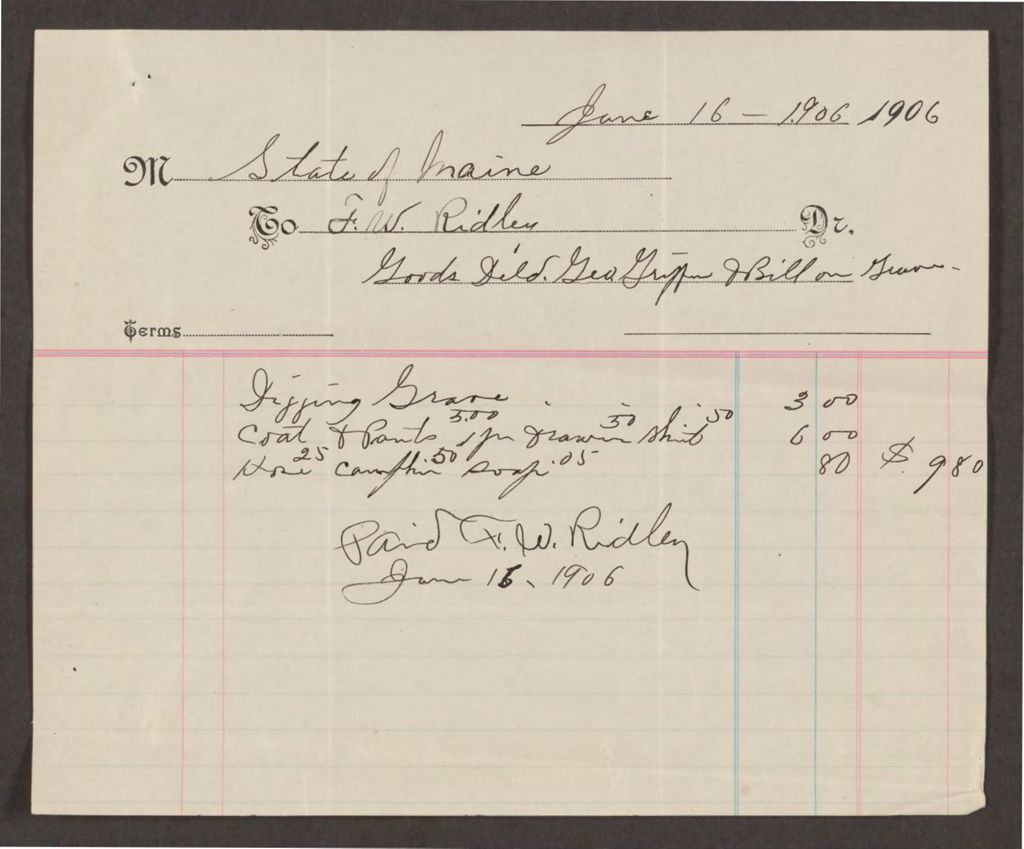 June 16 — 1906 1906
M State of Maine
To F. W. Ridley Dr.
Goods Deld. Geo Griffin & Bill on Grave
Terms
Digging Grave 3 00
Coat & Pants 5.00 1 pr drawers 50 Shirt 50 6 00
Hose 25 50 soap 05 80 $ 9 80
Paid F. W. Ridley
June 16, 1906